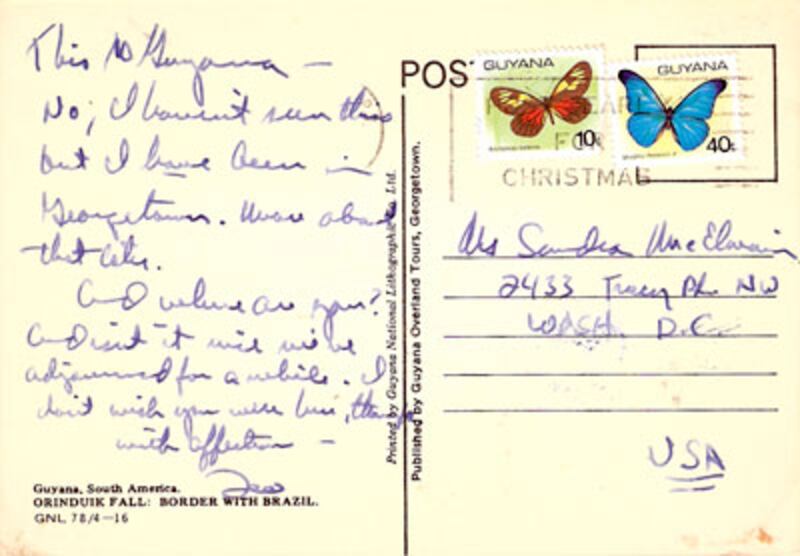 This is Guyana —
No, I haven't seen this
but I have been in
Georgetown. More about
that later.
And where are you?
And isn't it nice we've
adjourned for a while. I
don't wish you were here, though
with affection —
Guyana, South America.
ORINDUIK FALL: BORDER WITH BRAZIL.
GNL 78/4—16
Printed by Guyana National Lithographic Co. Ltd.
Published by Guyana Overland Tours, Georgetown.
POS
GUYANA
10c
GUYANA
40c
FOR
CHRISTMAS
Ms Sandra McElwain
2433 Tracy Pl. NW
WASH D.C.
USA